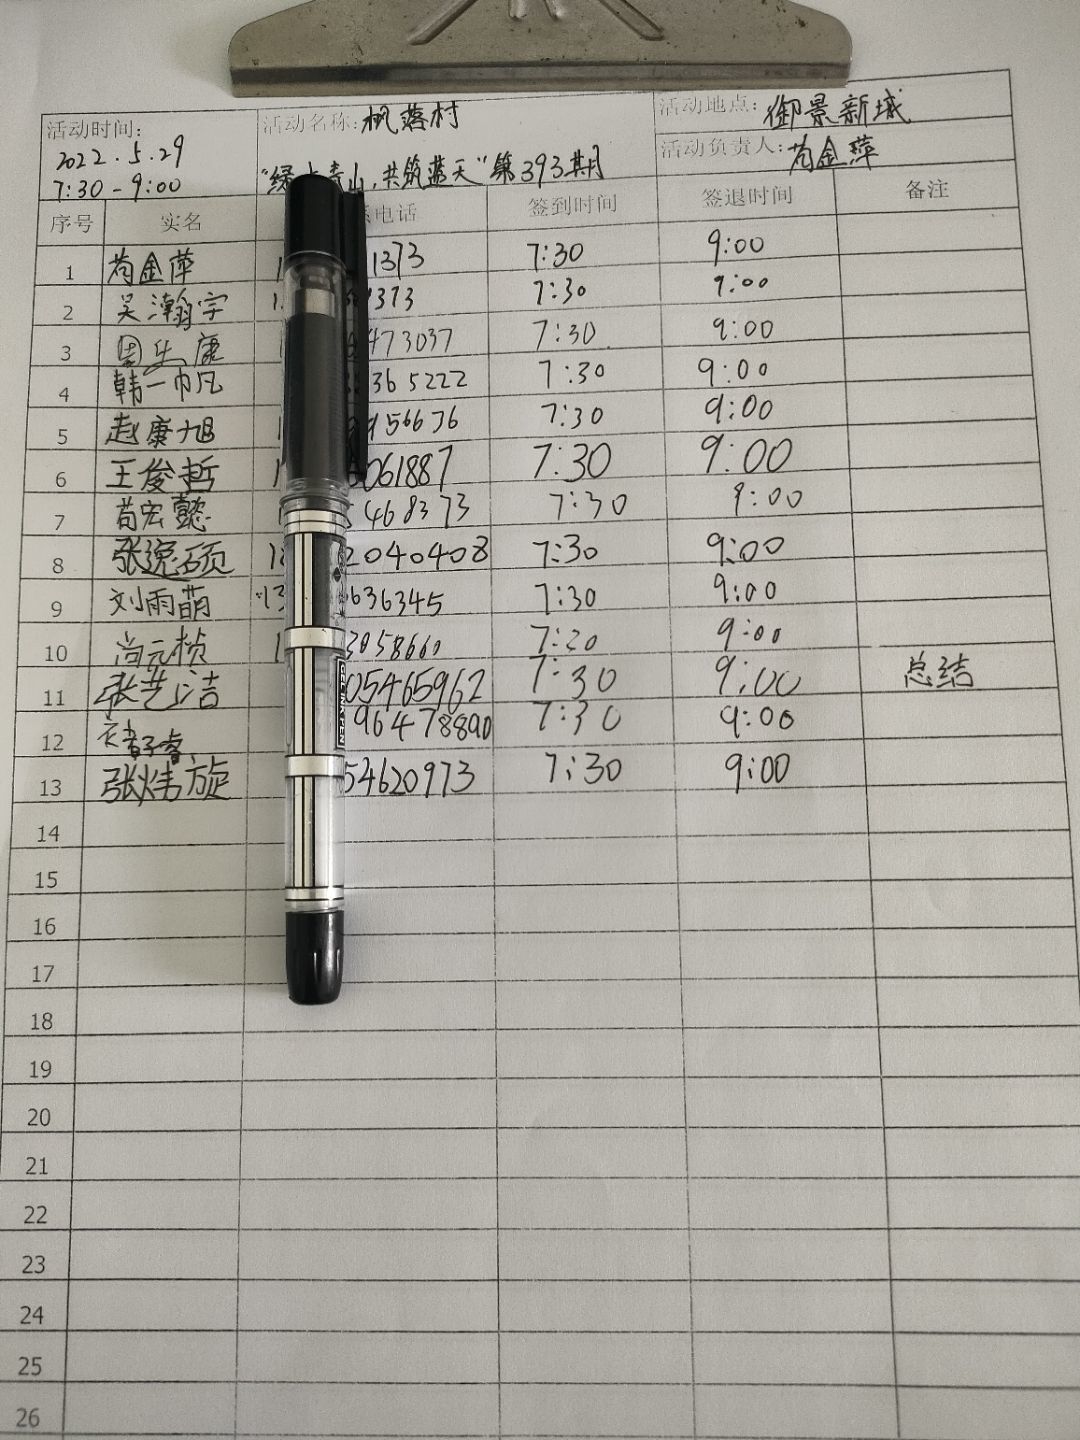 活动时间:
2022.5.29
7:30-9:00
活动名称: 枫落村
"绿 青山,共筑蓝天"第393期
活动地点: 御景新城
活动负责人: 苟金萍
序号 实名 电话 签到时间 签退时间 备注
1 苟金萍 1373 7:30 9:00
2 吴瀚宇 1373 7:30 9:00
3 康 473037 7:30 9:00
4 韩一帆 365222 7:30 9:00
5 赵康旭 956676 7:30 9:00
6 王俊哲 061887 7:30 9:00
7 苟宏懿 5468373 7:30 9:00
8 张逸硕 18 2040408 7:30 9:00
9 刘雨萌 13 636345 7:30 9:00
10 尚元桢 3058660 7:30 9:00
11 张艺洁 05465962 7:30 9:00 总结
12 睿 96478890 7:30 9:00
13 张炜旋 54620973 7:30 9:00
14
15
16
17
18
19
20
21
22
23
24
25
26